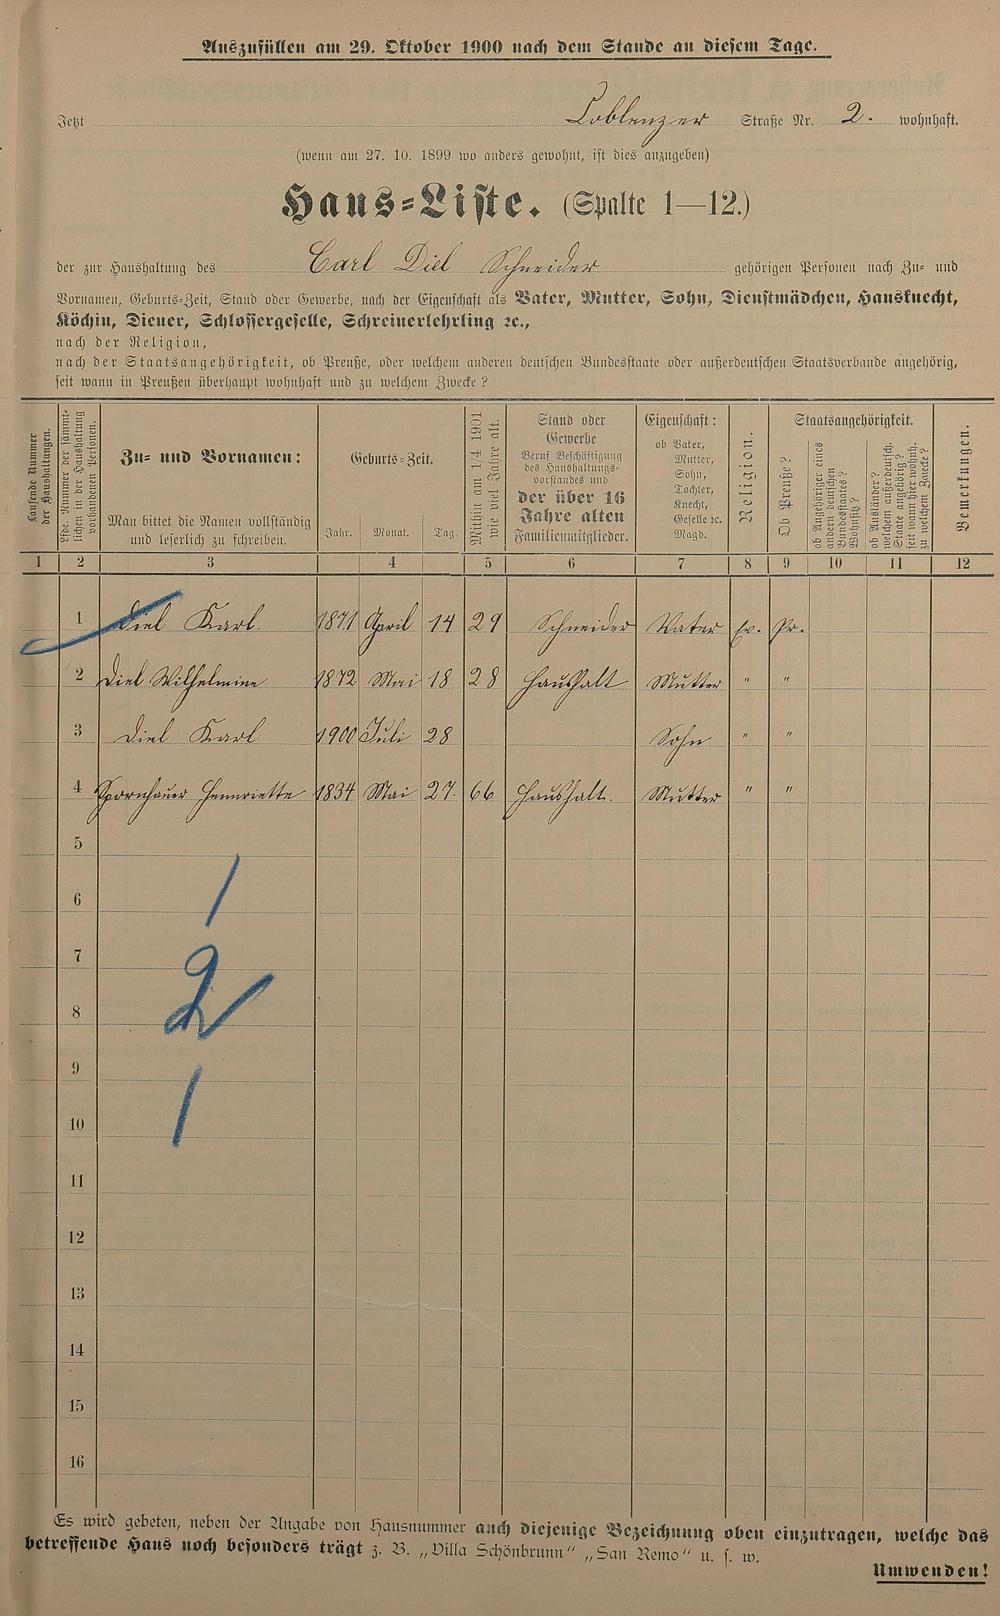 Auszufüllen am 29. Oktober 1900 nach dem Stande an diesem Tage.
Jetzt Coblenzer Straße Nr. 2. wohnhaft.
(wenn am 27. 10. 1899 wo anders gewohnt, ist dies anzugeben)
Haus-Liste. (Spalte 1—12.)
der zur Haushaltung des Carl Diel Schneider gehörigen Personen nach Zu- und
Vornamen, Geburts-Zeit, Stand oder Gewerbe, nach der Eigenschaft als Vater, Mutter, Sohn, Dienstmädchen, Hausknecht,
Köchin, Diener, Schlossergeselle, Schreinerlehrling ꝛc.,
nach der Religion,
nach der Staatsangehörigkeit, ob Preuße, oder welchem anderen deutschen Bundesstaate oder außerdeutschen Staatsverbande angehörig,
seit wann in Preußen überhaupt wohnhaft und zu welchem Zwecke?
Laufende Nummer
der Haushaltungen.
Lfde. Nummer der sämmt-
lichen in der Haushaltung
vorhandenen Personen.
Zu- und Vornamen:
Man bittet die Namen vollständig
und leserlich zu schreiben.
Geburts-Zeit.
Jahr. Monat. Tag.
Mithin am 1/4 1901
wie viel Jahre alt.
Stand oder
Gewerbe
Beruf Beschäftigung
des Haushaltungs-
vorstandes und
der über 16
Jahre alten
Familienmitglieder.
Eigenschaft:
ob Vater,
Mutter,
Sohn,
Tochter,
Knecht,
Geselle ꝛc.
Magd.
Religion.
Staatsangehörigkeit.
Ob Preuße?
ob Angehöriger eines
andern deutschen
Bundesstaates?
Wohnsitz?
ob Ausländer?
welchem außerdeutsch.
Staate angehörig?
seit wann hier wohnh.
zu welchem Zwecke?
Bemerkungen.
1 2 3 4 5 6 7 8 9 10 11 12
1 Diel Karl. 1871 April 14 29 Schneider Vater Ev. Pr.
2 Diel Wilhelmine 1872 Mai 18 28 Haushalt Mutter " "
3 Diel Karl 1900 Juli 28 Sohn " "
4 Spornhauer Hennriette 1834 Mai 27. 66 Haushalt. Mutter " "
5
6
7
8
9
10
11
12
13
14
15
16
1
2
1
Es wird gebeten, neben der Angabe von Hausnummer auch diejenige Bezeichnung oben einzutragen, welche das
betreffende Haus noch besonders trägt z. B. „Villa Schönbrunn" „San Remo" u. s. w.
Umwenden!